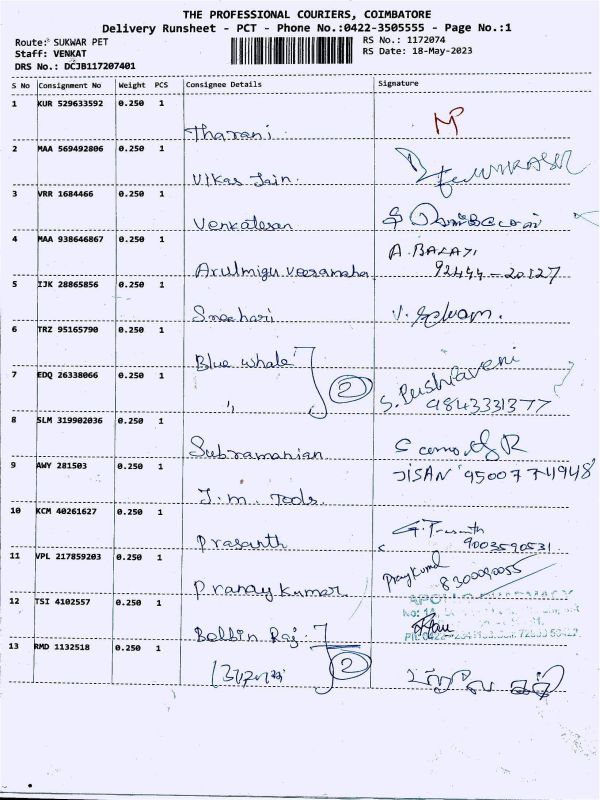 THE PROFESSIONAL COURIERS, COIMBATORE
Delivery Runsheet - PCT - Phone No.:0422-3505555 - Page No.:1
Route: SUKWAR PET
Staff: VENKAT
DRS No.: DCJB117207401
RS No.: 1172074
RS Date: 18-May-2023
S No Consignment No Weight PCS Consignee Details Signature
1 KUR 529633592 0.250 1
Tharani
2 MAA 569492806 0.250 1
Vikas Jain.
3 VRR 1684466 0.250 1
Venkatesan
4 MAA 938646867 0.250 1 A. BALAJI
Arulmigu veeramaha 92444-20127
5 IJK 28865856 0.250 1
Sreehari V. Selvam.
6 TRZ 95165790 0.250 1
Blue whale
7 EDQ 26338066 0.250 1 2 S. Pushpaveni
" 9843331377
8 SLM 319902036 0.250 1
Subramanian
9 AWY 281503 0.250 1 JISAN 9500774948
J.m. Tools
10 KCM 40261627 0.250 1
Prasanth 9003590531
11 VPL 217859203 0.250 1
Pranay kumar 8300090055
12 TSI 4102557 0.250 1 APOLLO PHARMACY
Belbin Raj
13 RMD 1132518 0.250 1
2